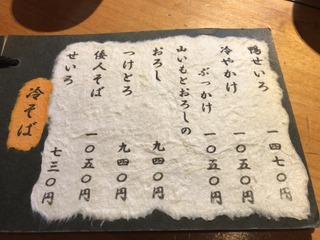 冷そば
鴨せいろ 一四七〇円
冷やかけ 一〇五〇円
山いもとおろしの
ぶっかけ 一〇五〇円
おろし 九四〇円
つけとろ 九四〇円
倭人そば 一〇五〇円
せいろ 七三〇円